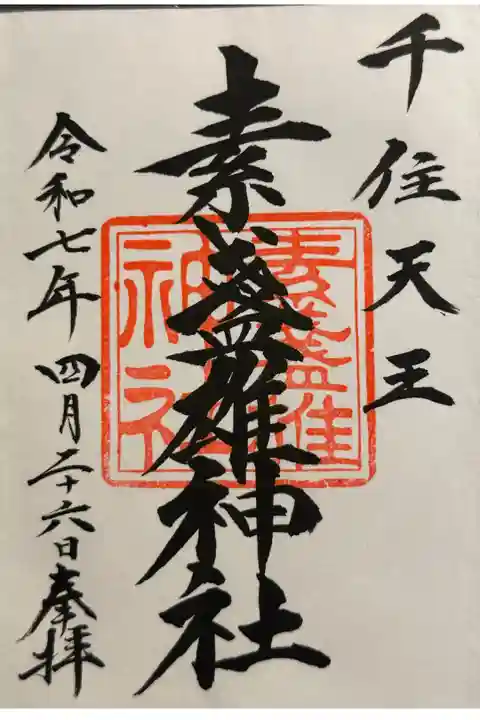 千住天王
素盞雄神社
素盞雄
神社
令和七年四月二十六日奉拝